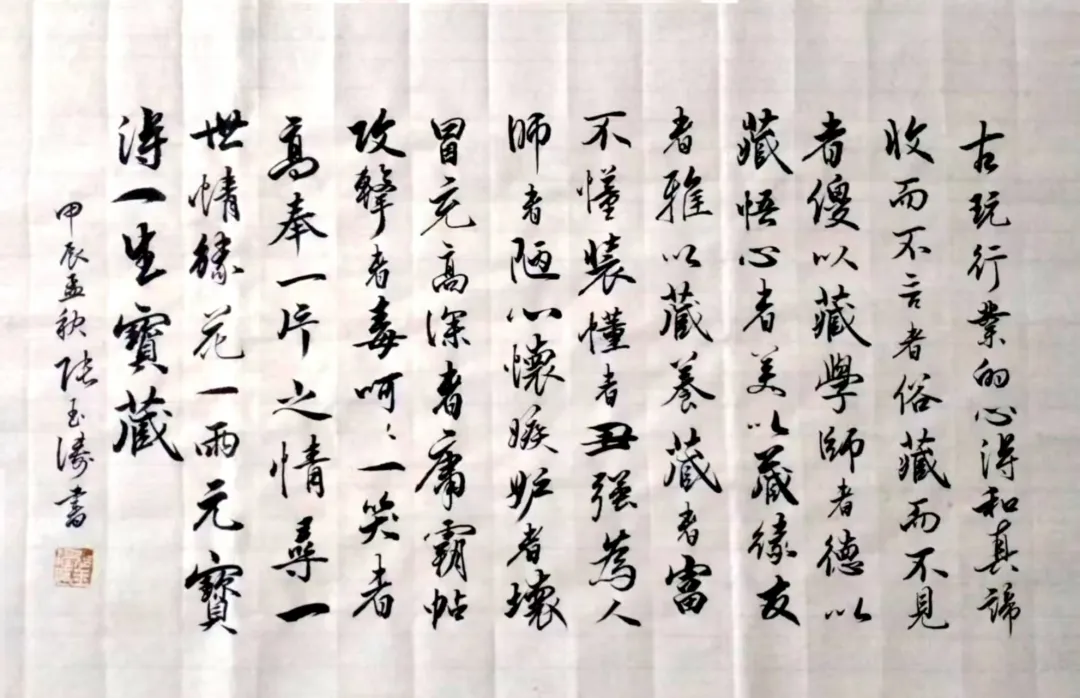 古玩行業的心得和真諦
收而不言者俗藏而不見
者傻以藏學師者德以
藏悟心者美以藏緣友
者雅以藏養藏者富
不懂裝懂者丑強為人
師者陋心懷嫉妒者壞
冒充高深者庸霸帖
攻擊者毒呵〻一笑者
高奉一片之情尋一
世情緣花一兩元寶
得一生寶藏
甲辰孟秋張玉濤書